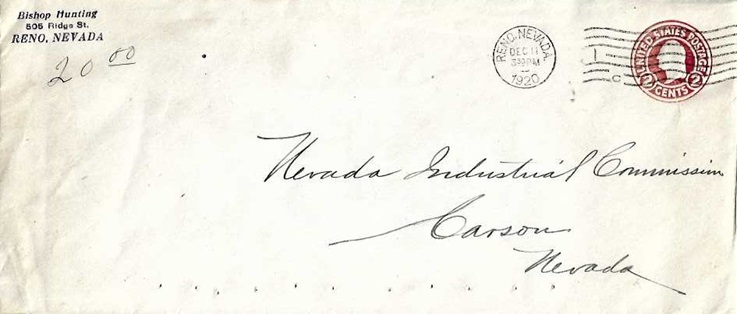 Bishop Hunting
505 Ridge St.
RENO, NEVADA
20 00
RENO, NEVADA
DEC 11
1920
UNITED STATES POSTAGE
2 CENTS 2
Nevada Industrial Commission
Carson
Nevada